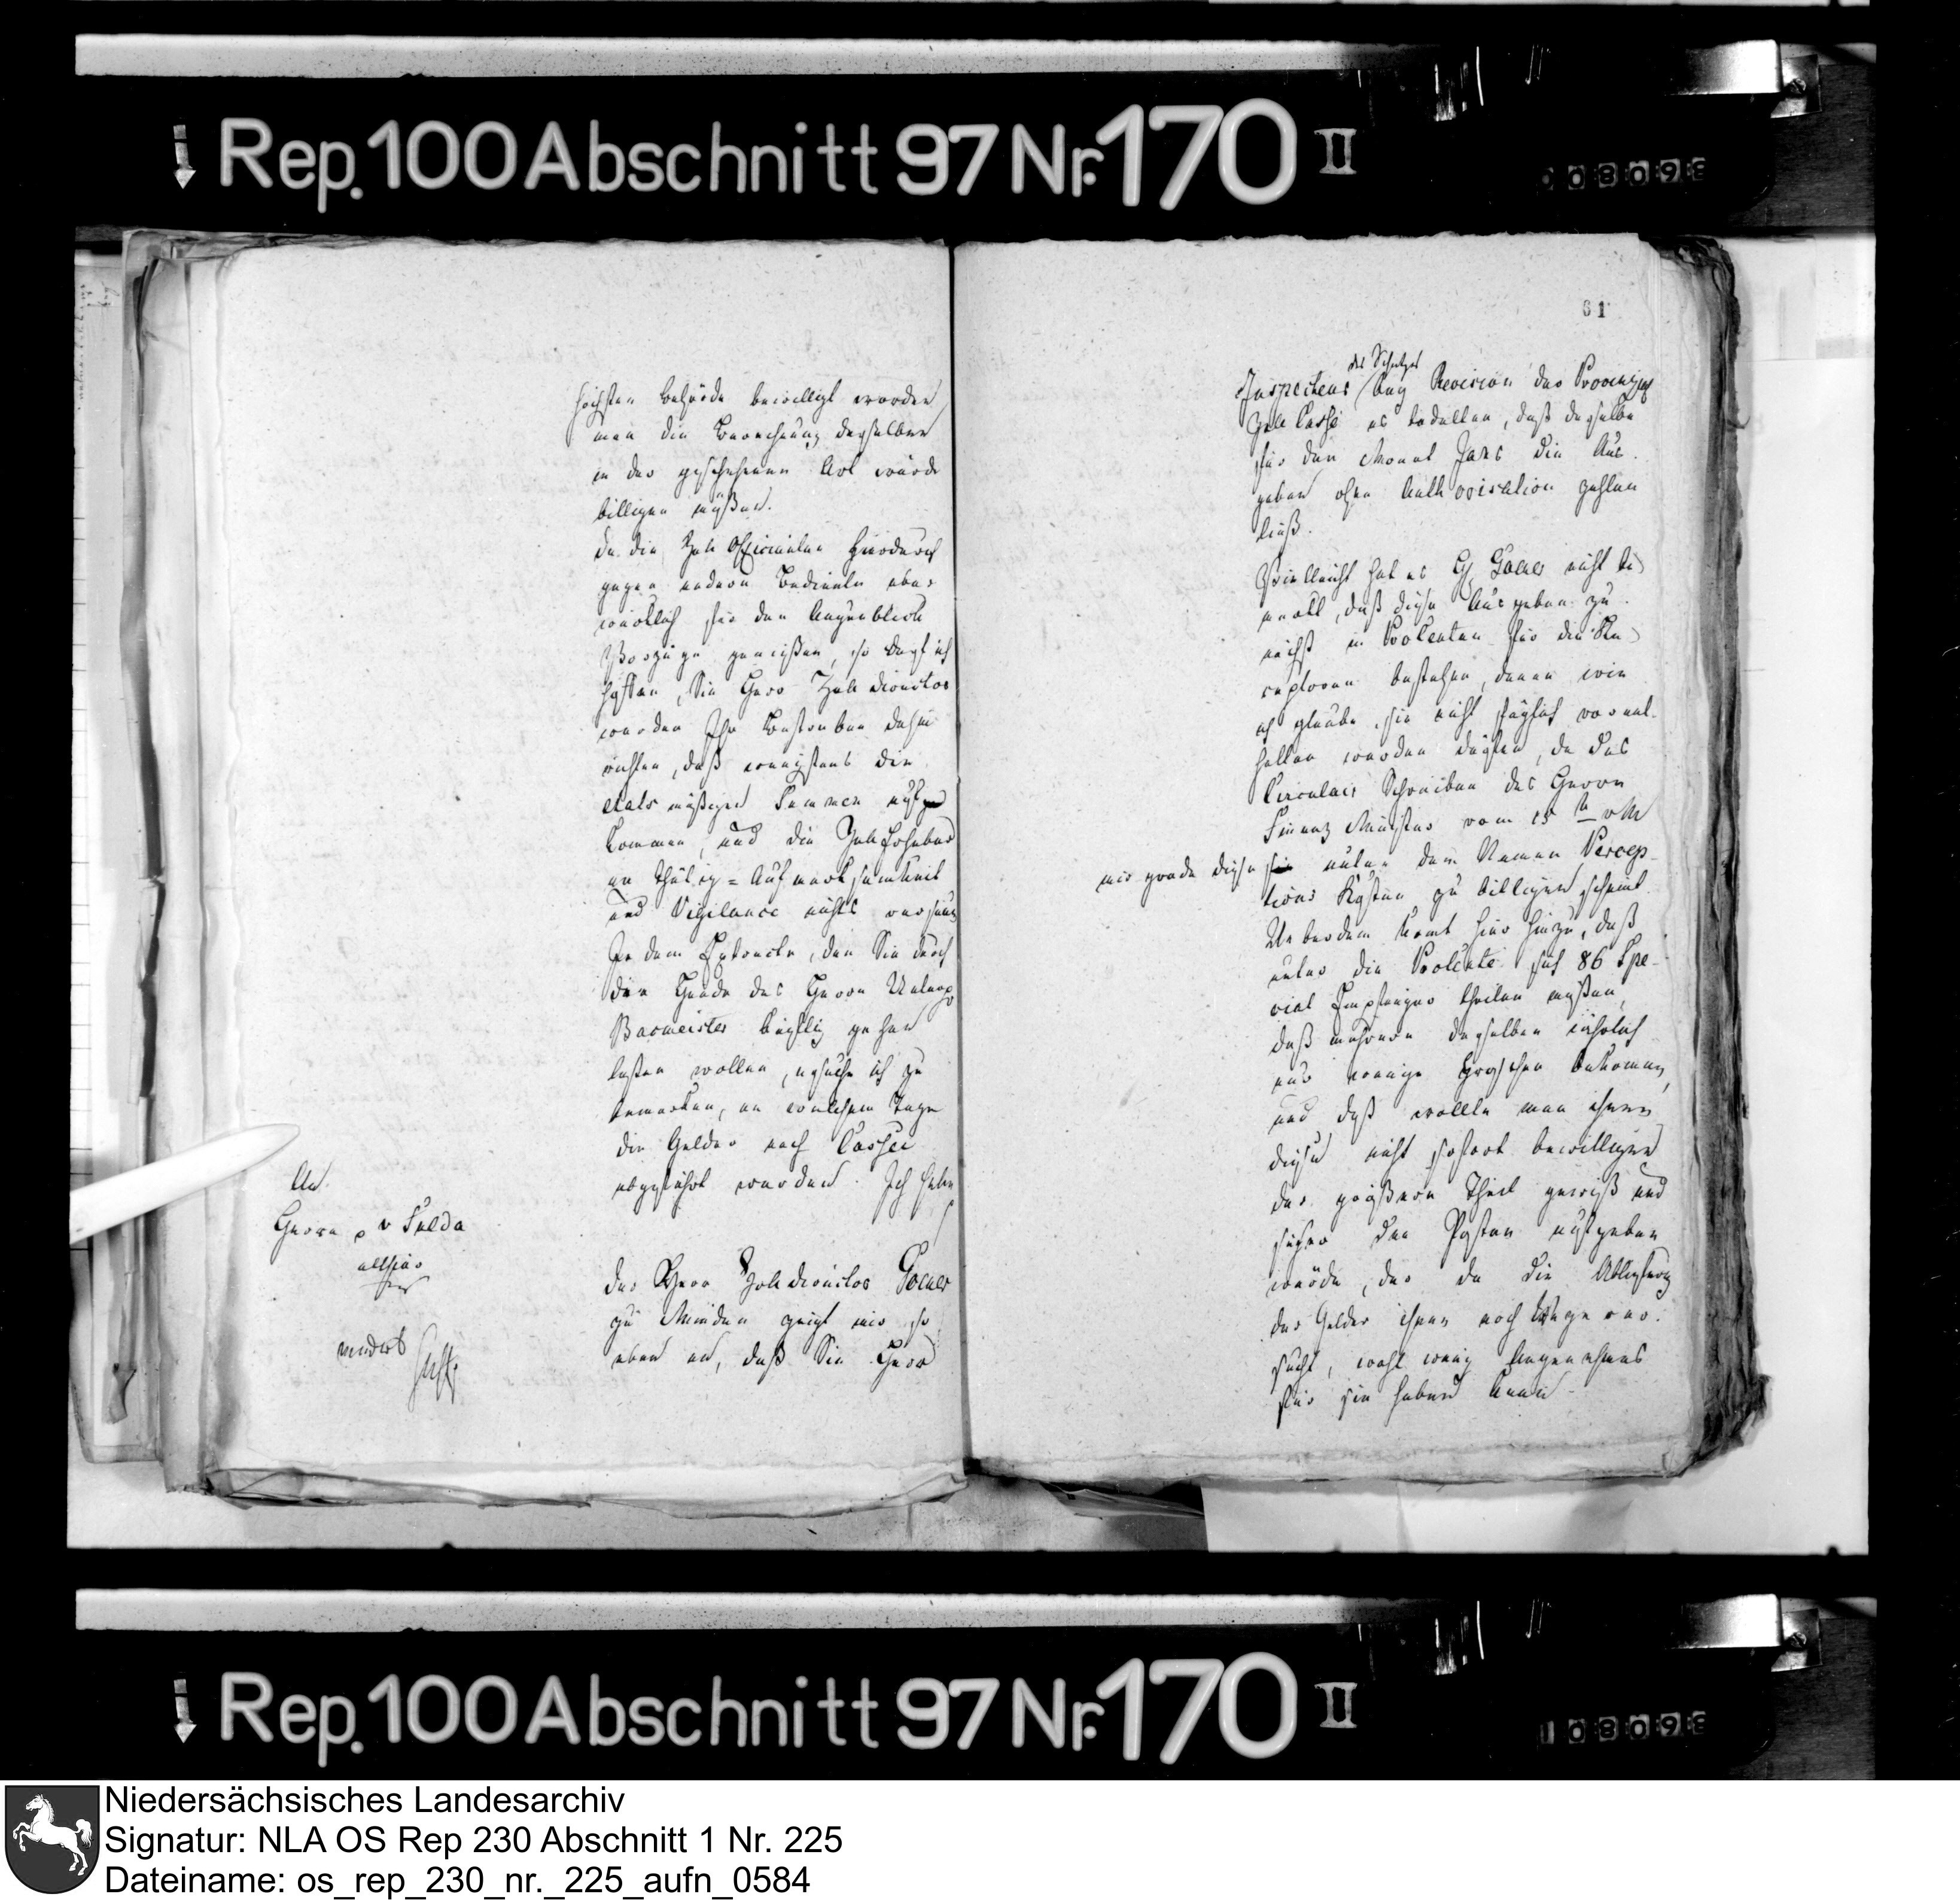 Rep. 100 Abschnitt 97 Nr. 170 II
höchsten Behörde bewilligt worden
man die Berechnung derselben
in der geschehenen Art würde
billigen müßen.
da die Zoll Officianten hierdurch
gegen andere Bediente aber
wirklich für den Augenblick
Vorzüge genießen, so darf ich
hoffen, Sie Herr Zoll Director
werden Ihr Bestreben dahin
richten, daß wenigstens die
etats mäßigen Summen auf
kommen, und die Zoll Erheber
an Thätig= Aufmerksamkeit
und Vigilance nichts
In dem Extracte, den Sie durch
die Hände des Herrn
Barmeister künftig gehen
laßen wollen, ersuche ich zu
bemerken, an welchem Tage
die Gelder nach Cassel
abgeführt werden. Ich habe
An
Herrn v Fulda
allhier
der Herr Zolldirector Goener
zu Minden zeigt mir so
eben an, daß Sie Herr
61
Inspecteur bey Revision der Provinzial
Zoll Casse es tadelten, daß derselbe
für den Monat Jans die Aus-
gaben ohne Authorisation zahlen
ließ.
Vielleicht hat es H. Goener nicht be
merkt, daß diese Ausgaben zu-
nächst in Procenten für die Re
ceptoren bestehen, denen wie
ich glaube sie nicht füglich vorent-
halten werden dürften, da das
Circulair Schreiben des Herrn
Finanz Minister vom 15 v M
mir grade diese unter dem Namen Percep-
tions Kosten zu billigen scheint
Ueberdem komt hier hinzu, daß
unter die Procente sich 86 Spe-
cial Empfänger theilen müßen,
daß mehrere derselben jährlich
nur wenige Groschen bekomen,
und daß wollte man ihnen
diese nicht sofort bewilligen
der größere Theil gewiß und
sicher den Posten aufgeben
würde, der da die Ablieferung
der Gelder ihnen noch Wege ver-
sucht, wohl wenig Angenehmes
für sie haben kann
Rep. 100 Abschnitt 97 Nr. 170 II
Niedersächsisches Landesarchiv
Signatur: NLA OS Rep 230 Abschnitt 1 Nr. 225
Dateiname: os_rep_230_nr._225_aufn_0584